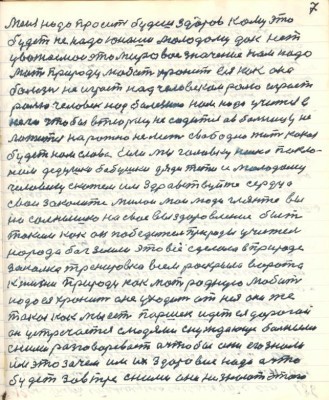 7
Меня надо просить будеш здоров кому это
будет не надо юноши молодому дак нет
уважаемое это мировое значение нам надо
мать природу любить хранить ея как она
болезнь не играет над человеком ролю играет
ролю человек над болезнию нам надо учится в
чтобы в тюрьму не садится а в больницу не
ложится напротив не лезь свободно жить какая
будет нам слава Если мы головку покло-
ним дедушке бабушке дяди тёти и молодому
человеку скажем им здравствуйте сердцо
свои закалите милои мои люди гляньте вы
на солнышко на свое выздоровление быть
таким как он победител природы учител
народа бог земли это всё сделано в природе
закалка тренировка всем раскрыла ворота
к жизни природу как мать родную любить
надо ея хранить она уходит от нея она же
такая как месть паршек идет ея дорогой
он встречается с людями с нуждающе больнию
с ними разговоривает а чтобы они его знали
им это зачем им их здоровие надо а что
будет завтра с ними они не знают этого